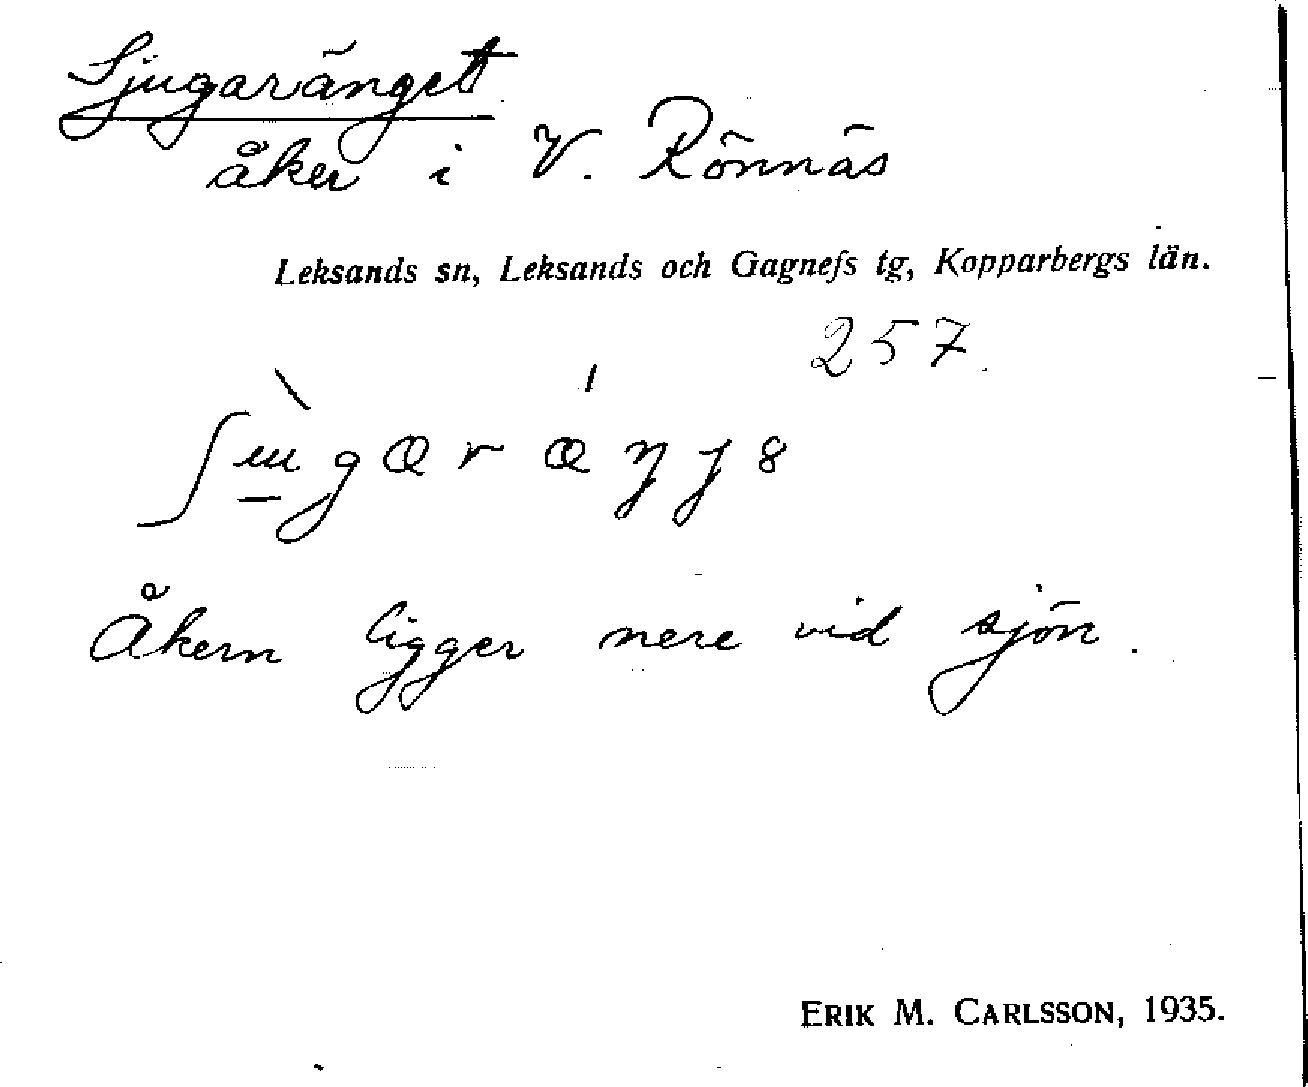 Sjugaränget
åker i V. Rönnäs
Leksands sn, Leksands och Gagnefs tg, Kopparbergs län.
257.
Åkern ligger nere vid sjön.
ERIK M. CARLSSON, 1935.